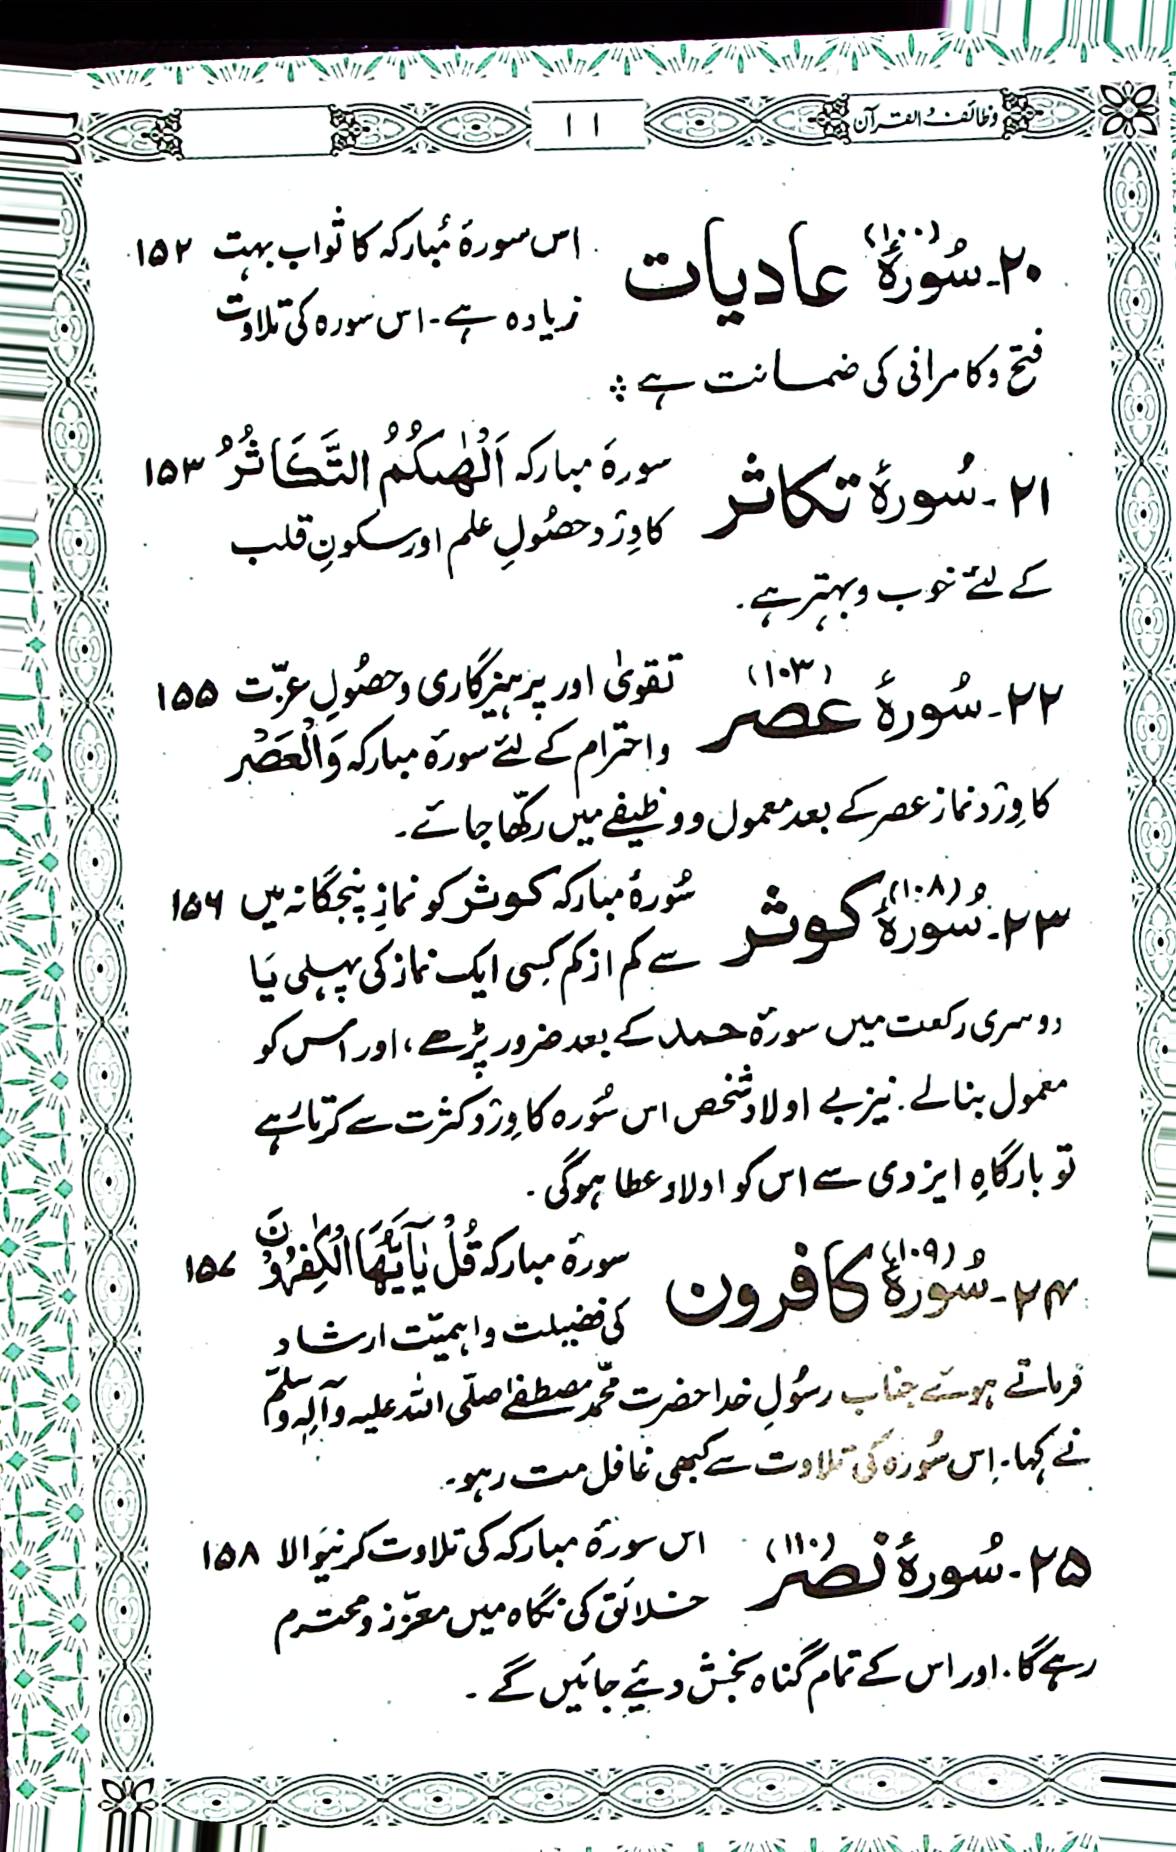 وظائف القرآن
۱۱
۲۰۔ سُورۂ عادیات (۱۰۰) اس سورۂ مُبارکہ کا ثواب بہت ۱۵۲
زیادہ ہے۔ اس سورہ کی تلاوت
فتح و کامرانی کی ضمانت ہے ؞
۲۱۔ سُورۂ تکاثر سورۂ مبارکہ اَلْهٰىكُمُ التَّكَاثُرُ ۱۵۳
کا وِرْد حصُولِ علم اور سکونِ قلب
کے لئے خوب و بہتر ہے۔
۲۲۔ سُورۂ عصر (۱۰۳) تقویٰ اور پرہیزگاری و حصُولِ عزّت ۱۵۵
و احترام کے لئے سورۂ مبارکہ وَالْعَصْرِ
کا وِرْد نماز عصر کے بعد معمول و وظیفے میں رکھّا جائے۔
۲۳۔ سُورۂ کوثر (۱۰۸) سُورۂ مبارکہ کوثر کو نمازِ پنجگانہ میں ۱۵۶
سے کم از کم کِسی ایک نماز کی پہلی یَا
دوسری رکعت میں سورۂ حمد کے بعد ضرور پڑھے، اور اس کو
معمول بنالے۔ نیز بے اولاد شخص اس سُورہ کا وِرْد کثرت سے کرتا رہے
تو بارگاہِ ایزدی سے اس کو اولاد عطا ہوگی۔
۲۴۔ سُورۂ کافرون (۱۰۹) سورۂ مبارکہ قُلْ يٰٓاَيُّهَا الْكٰفِرُوْنَ ۱۵۷
کی فضیلت و اہمیّت ارشاد
فرماتے ہوئے جناب رسُولِ خدا حضرت محمّد مصطفےٰ صلّی اللہ علیہ وآلہٖ وسلّم
نے کہا۔ اِس سُورہ کی تلاوت سے کبھی غافل مت رہو۔
۲۵۔ سُورۂ نصر (۱۱۰) اس سورۂ مبارکہ کی تلاوت کرنیوالا ۱۵۸
خلائق کی نگاہ میں معزّز و محترم
رہے گا۔ اور اس کے تمام گناہ بخش دئیے جائیں گے۔